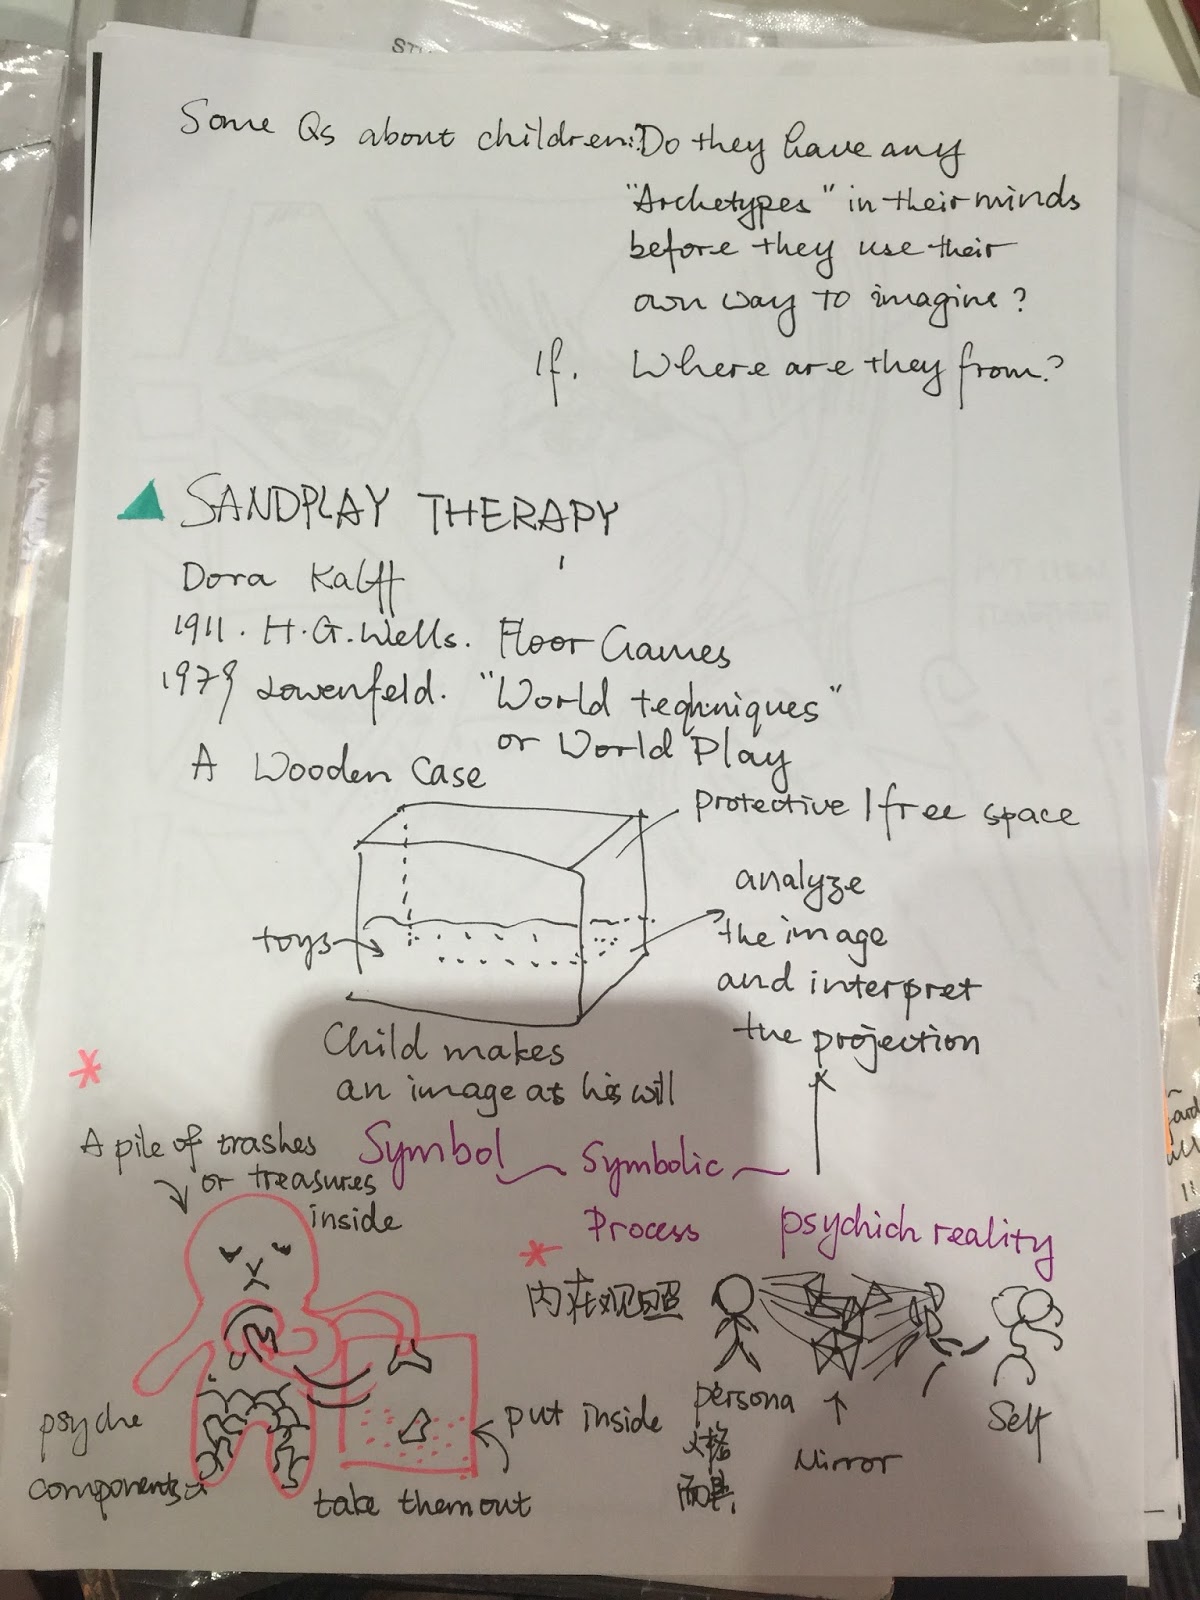 Some Qs about children: Do they have any
"Archetypes" in their minds
before they use their
own way to imagine?
If. Where are they from?
SANDPLAY THERAPY
Dora Kalff
1911. H.G.Wells. Floor Games
1979 Lowenfeld. "World teqhniques"
or World Play
A Wooden Case
protective / free space
toys
analyze
the image
and interpret
the projection
Child makes
an image as his will
Symbol
Symbolic
Process
psychich reality
A pile of trashes
or treasures
inside
psyche
components
put inside
take them out
内在观照
persona
人格
面具
Mirror
Self